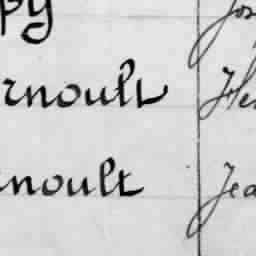 py Jos
rnoult He
noult Jea